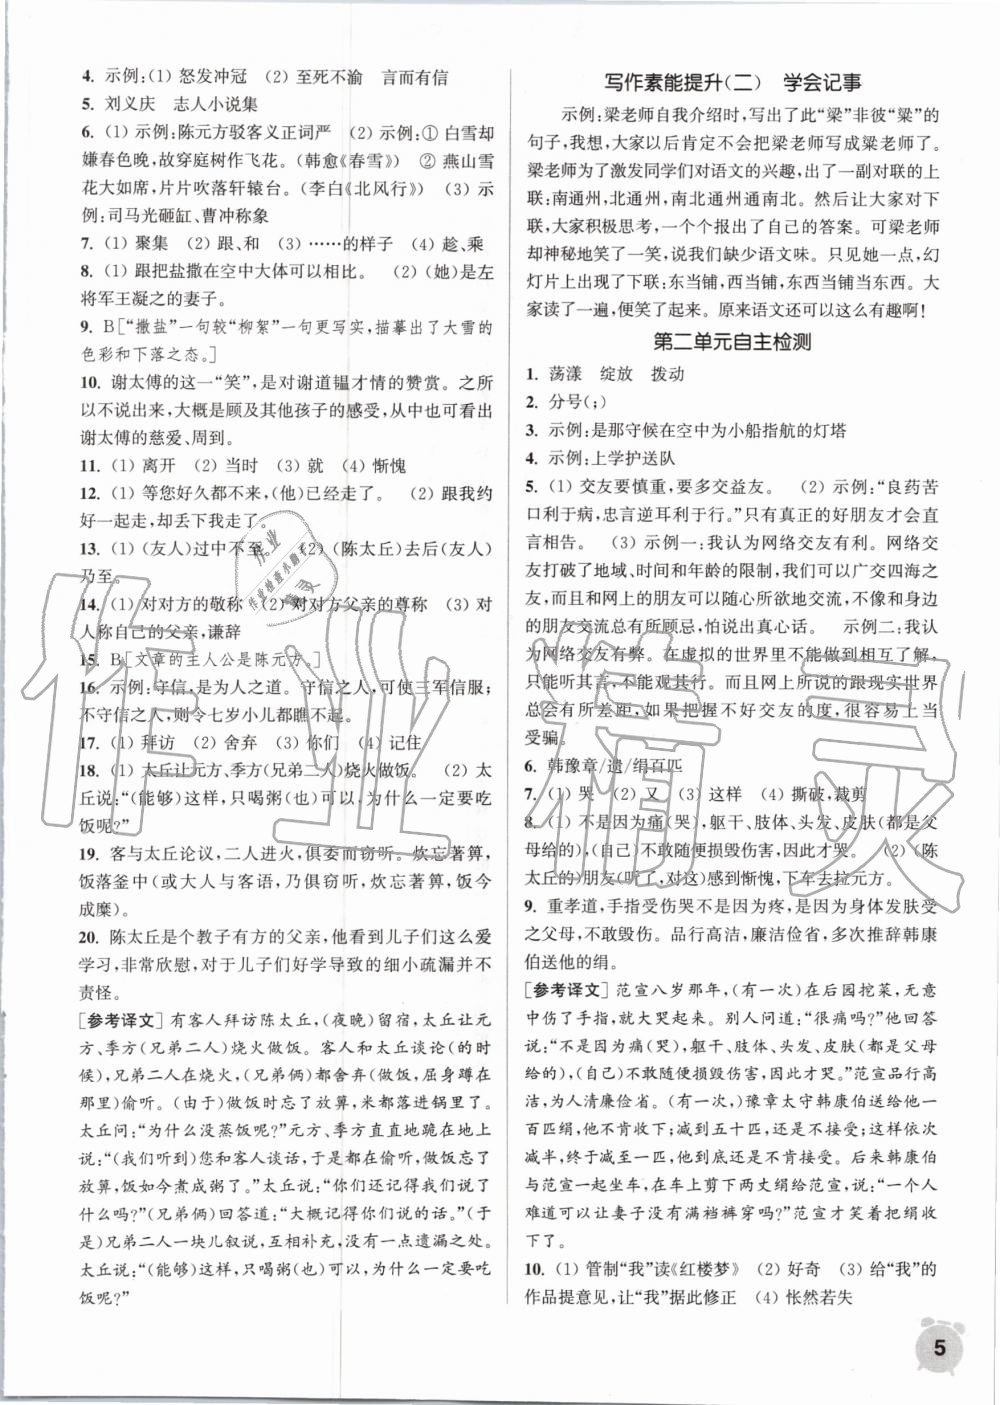 4. 示例:(1) 怒发冲冠　(2) 至死不渝　言而有信
5. 刘义庆　志人小说集
6. (1) 示例:陈元方驳客义正词严　(2) 示例:① 白雪却
嫌春色晚,故穿庭树作飞花。(韩愈《春雪》)　② 燕山雪
花大如席,片片吹落轩辕台。(李白《北风行》)　(3) 示
例:司马光砸缸、曹冲称象
7. (1) 聚集　(2) 跟、和　(3) ……的样子　(4) 趁、乘
8. (1) 跟把盐撒在空中大体可以相比。　(2) (她)是左
将军王凝之的妻子。
9. B[“撒盐”一句较“柳絮”一句更写实,描摹出了大雪的
色彩和下落之态。]
10. 谢太傅的这一“笑”,是对谢道韫才情的赞赏。之所
以不说出来,大概是顾及其他孩子的感受,从中也可看出
谢太傅的慈爱、周到。
11. (1) 离开　(2) 当时　(3) 就　(4) 惭愧
12. (1) 等您好久都不来,(他)已经走了。　(2) 跟我约
好一起走,却丢下我走了。
13. (1) (友人)过中不至　(2) (陈太丘)去后(友人)
乃至。
14. (1) 对对方的敬称　(2) 对对方父亲的尊称　(3) 对
人称自己的父亲,谦辞
15. B[文章的主人公是陈元方。]
16. 示例:守信,是为人之道。守信之人,可使三军信服;
不守信之人,则令七岁小儿都瞧不起。
17. (1) 拜访　(2) 舍弃　(3) 你们　(4) 记住
18. (1) 太丘让元方、季方(兄弟二人)烧火做饭。　(2) 太
丘说:“(能够)这样,只喝粥(也)可以,为什么一定要吃
饭呢?”
19. 客与太丘论议,二人进火,俱委而窃听。炊忘著箅,
饭落釜中(或大人与客语,乃俱窃听,炊忘著箅,饭今
成糜)。
20. 陈太丘是个教子有方的父亲,他看到儿子们这么爱
学习,非常欣慰,对于儿子们好学导致的细小疏漏并不
责怪。
[参考译文] 有客人拜访陈太丘,(夜晚)留宿,太丘让元
方、季方(兄弟二人)烧火做饭。客人和太丘谈论(的时
候),兄弟二人在烧火,(兄弟俩)都舍弃(做饭,屈身蹲在
那里)偷听。(由于)做饭时忘了放箅,米都落进锅里了。
太丘问:“为什么没蒸饭呢?”元方、季方直直地跪在地上
说:“(我们听到)您和客人谈话,于是就一起偷听,做饭忘了
放箅,饭如今煮成粥了。”太丘说:“你们还记得我们说了
什么吗?”(兄弟俩)回答道:“大概记得你们说的话。”(于
是)兄弟二人一块儿叙说,互相补充,没有一点遗漏之处。
太丘说:“(能够)这样,只喝粥(也)可以,为什么一定要吃
饭呢?”
写作素能提升(二)　学会记事
示例:梁老师自我介绍时,写出了此“梁”非彼“粱”的
句子,我想,大家以后肯定不会把梁老师写成粱老师了。
梁老师为了激发同学们对语文的兴趣,出了一副对联的上
联:南通州,北通州,南北通州通南北。然后让大家对下
联,大家积极思考,一个个报出了自己的答案。可梁老师
却神秘地笑了一笑,说我们缺少语文味。只见她一点,幻
灯片上出现了下联:东当铺,西当铺,东西当铺当东西。大
家读了一遍,便笑了起来。原来语文还可以这么有趣啊!
第二单元自主检测
1. 荡漾　绽放　拨动
2. 分号(;)
3. 示例:是那守候在空中为小船指航的灯塔
4. 示例:上学护送队
5. (1) 交友要慎重,要多交益友。　(2) 示例:“良药苦
口利于病,忠言逆耳利于行。”只有真正的好朋友才会直
言相告。　(3) 示例一:我认为网络交友有利。网络交
友打破了地域、时间和年龄的限制,我们可以广交四海之
友,而且和网上的朋友可以随心所欲地交流,不像和身边
的朋友交流总有所顾忌,怕说出真心话。　示例二:我认
为网络交友有弊。在虚拟的世界里不易观察和了解,
只能听其言,不能观其行。而且网上所说的跟现实世界
总会有所差距,如果把握不好交友的度,很容易上当
受骗。
6. 韩豫章/遗/绢百匹
7. (1) 哭　(2) 又　(3) 这样　(4) 撕破,裁剪
8. (1) 不是因为痛(哭),躯干、肢体、头发、皮肤(都是父
母给的),(自己)不敢随便毁损伤害,因此才哭。　(2) (陈
太丘的)朋友(听了,对这)感到惭愧,下车去拉元方。
9. 重孝道,手指受伤哭不是因为疼,是因为身体发肤受
之父母,不敢毁伤。品行高洁,廉洁俭省,多次推辞韩康
伯送他的绢。
[参考译文] 范宣八岁那年,(有一次)在后园挖菜,无意
中伤了手指,就大哭起来。别人问道:“很痛吗?”他回答
说:“不是因为痛(哭),躯干、头发、皮肤(都是父母
给的),(自己)不敢随便毁损伤害,因此才哭。”范宣品行高
洁,为人清廉俭省。(有一次,)豫章太守韩康伯送给他一
百匹绢,他不肯收下;减到五十匹,还是不接受;这样依次
减半,终于减至一匹,他到底还是不肯接受。后来韩康伯
与范宣一起坐车,在车上剪下两丈绢给范宣,说:“一个人
难道可以让妻子没有满裆裤穿吗?”范宣才笑着把绢收
下了。
10. (1) 管制“我”读《红楼梦》　(2) 好奇　(3) 给“我”的
作品提意见,让“我”据此修正　(4) 怅然若失
5
作业精灵